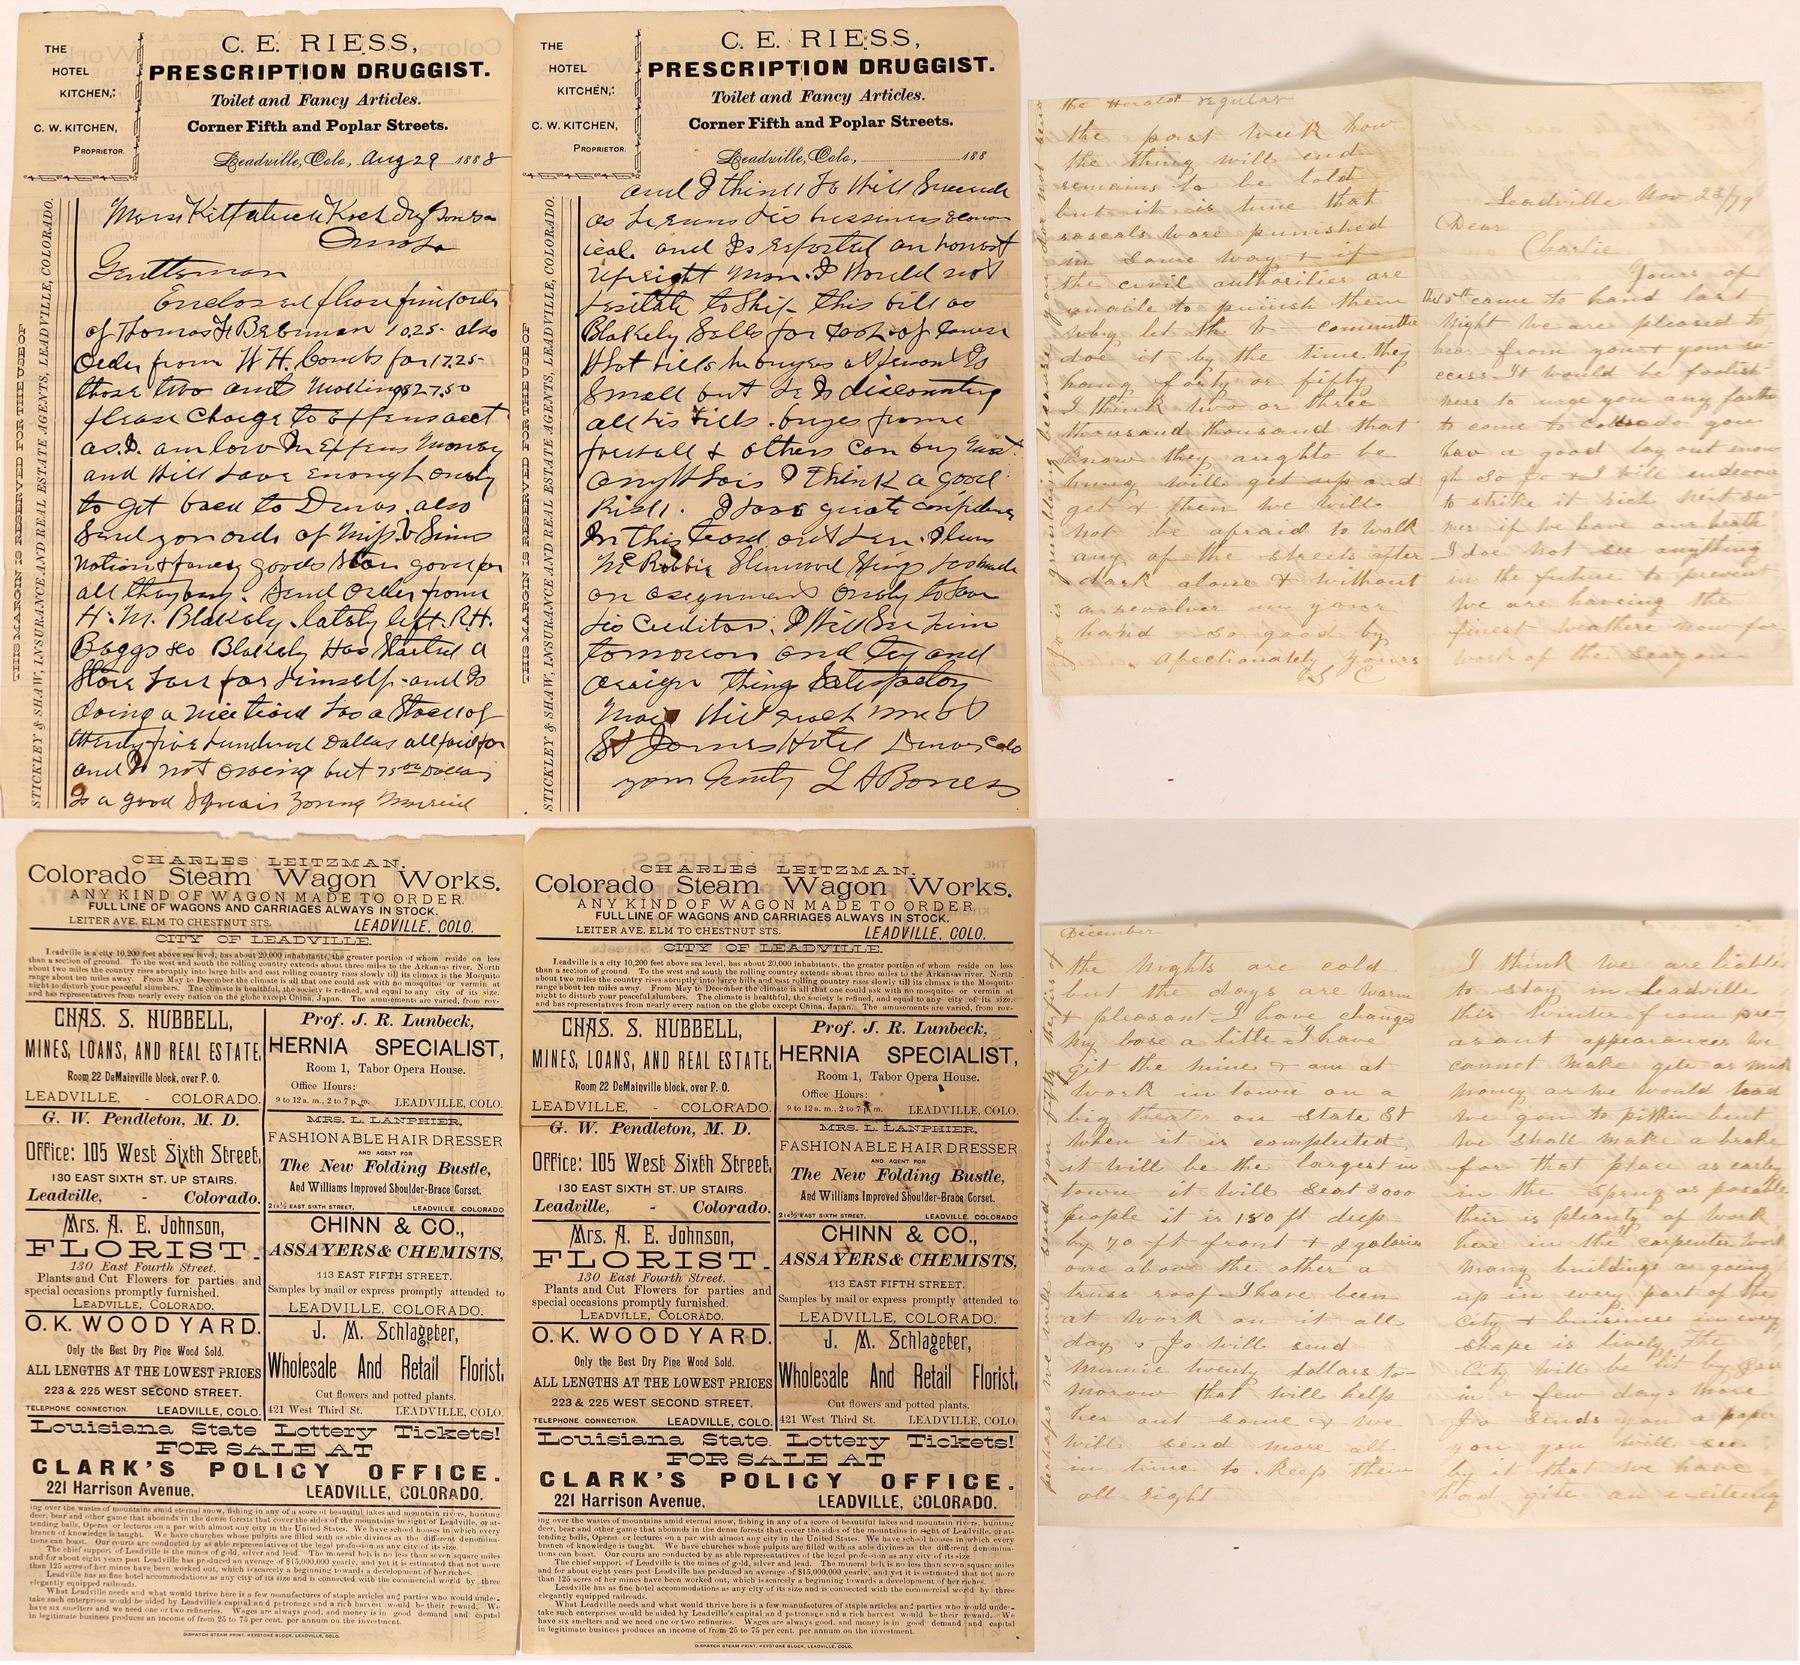 THE
HOTEL
KITCHEN,
C. W. KITCHEN,
PROPRIETOR.
C. E. RIESS,
PRESCRIPTION DRUGGIST.
Toilet and Fancy Articles.
Corner Fifth and Poplar Streets.
Leadville, Colo., Aug 29 1888
THIS MARGIN IS RESERVED FOR THE USE OF
STICKLEY & SHAW, INSURANCE AND REAL ESTATE AGENTS, LEADVILLE, COLORADO.
Gentleman
Enclosed please find order
of Thomas H 10.25 also
order from W H. Combs for 17.25
these two amts 27.50
please Charge to Expens acct
as. I. am low in Expens Money
and Will have enough only
to get back to Denver. also
Send you order of
notion & fancy goods good for
all they buy. Send order from
H. M. Blakely. lately left R. H.
Baggs & co Blakely Has Started a
Store for himself and Is
doing a nice Has a Stock of
twenty five hundred Dollars all paid for
and Is not owing but 75 00 Dollars
Is a good Square young
THE
HOTEL
KITCHEN,
C. W. KITCHEN,
PROPRIETOR.
C. E. RIESS,
PRESCRIPTION DRUGGIST.
Toilet and Fancy Articles.
Corner Fifth and Poplar Streets.
Leadville, Colo., 188
THIS MARGIN IS RESERVED FOR THE USE OF
STICKLEY & SHAW, INSURANCE AND REAL ESTATE AGENTS, LEADVILLE, COLORADO.
and I think He Will
as He runs His bussiness
and Is reported an honest
upright Man. I Would not
hesitate to Ship this bill as
Blakely Sells for
that bills he buyes at
Small but He Is discounting
all his bills. buyes from
& others Can buy
I think a good
Risk. I Have
In this
McRobbie
on only to Save
His Creditors. I Will See him
tomorrow and try and
thing Satisfactory
Will reach me at
St James Hotel Denver Colo
L H
the Herald regular
the past week how
the thing will end
remains to be told
but it is time that
rascals ware punished
in some way & if
the civil authorities are
unable to punish them
why let the committe
doe it by the time they
hang forty or fifty
I think two or three
thousand thousand that
know they aughto be
hung will get up and
get & then we will
not be afraid to walk
any of the streets after
dark alone & without
a revolver in your
hand so good by
afectionately yours
Leadville Nov 23/79
Dear
Charlie
Yours of
the 5th came to hand last
night we are pleased to
hear from you & your su-
ccess. It would be foolish-
ness to urge you any farther
to come to Colorado you
hav a good lay out enou-
gh so Jo & I will endeavor
to strike it rich next su-
mer if we have our health
I doe not see anything
in the future to prevent
We are haveing the
finest weather now for
most of the season
CHARLES LEITZMAN.
Colorado Steam Wagon Works.
ANY KIND OF WAGON MADE TO ORDER.
FULL LINE OF WAGONS AND CARRIAGES ALWAYS IN STOCK.
LEITER AVE. ELM TO CHESTNUT STS. LEADVILLE, COLO.
CITY OF LEADVILLE.
Leadville is a city 10,200 feet above sea level, has about 20,000 inhabitants, the greater portion of whom reside on less
than a section of ground. To the west and south the rolling country extends about three miles to the Arkansas river. North
about two miles the country rises abruptly into large hills and east rolling country rises slowly till its climax is the Mosquito
range about ten miles away. From May to December the climate is all that one could ask with no mosquitos or vermin at
night to disturb your peaceful slumbers. The climate is healthful, the society is refined, and equal to any city of its size.
and has representatives from nearly every nation on the globe except China, Japan. The amusements are varied, from rov-
CHAS. S. HUBBELL,
MINES, LOANS, AND REAL ESTATE,
Room 22 DeMainville block, over P. O.
LEADVILLE, - COLORADO.
G. W. Pendleton, M. D.
Office: 105 West Sixth Street,
130 EAST SIXTH ST. UP STAIRS.
Leadville, - Colorado.
Mrs. A. E. Johnson,
FLORIST.
130 East Fourth Street.
Plants and Cut Flowers for parties and
special occasions promptly furnished.
LEADVILLE, COLORADO.
O. K. WOODYARD.
Only the Best Dry Pine Wood Sold.
ALL LENGTHS AT THE LOWEST PRICES
223 & 225 WEST SECOND STREET.
TELEPHONE CONNECTION. LEADVILLE, COLO.
Prof. J. R. Lunbeck,
HERNIA SPECIALIST,
Room 1, Tabor Opera House.
Office Hours:
9 to 12 a. m., 2 to 7 p. m. LEADVILLE, COLO.
MRS. L. LANPHIER,
FASHIONABLE HAIR DRESSER
AND AGENT FOR
The New Folding Bustle,
And Williams Improved Shoulder-Brace Corset.
218½ EAST SIXTH STREET, LEADVILLE, COLORADO
CHINN & CO.,
ASSAYERS & CHEMISTS,
113 EAST FIFTH STREET.
Samples by mail or express promptly attended to
LEADVILLE, COLORADO.
J. M. Schlageter,
Wholesale And Retail Florist,
Cut flowers and potted plants.
421 West Third St. LEADVILLE, COLO.
Louisiana State Lottery Tickets!
FOR SALE AT
CLARK'S POLICY OFFICE.
221 Harrison Avenue, LEADVILLE, COLORADO.
ing over the wastes of mountains amid eternal snow, fishing in any of a score of beautiful lakes and mountain rivers, hunting
deer, bear and other game that abounds in the dense forests that cover the sides of the mountains in sight of Leadville, or at-
tending balls, Operas or lectures on a par with almost any city in the United States. We have school houses in which every
branch of knowledge is taught. We have churches whose pulpits are filled with as able divines as the different denomina-
tions can boast. Our courts are conducted by as able representatives of the legal profession as any city of its size.
The chief support of Leadville is the mines of gold, silver and lead. The mineral belt is no less than seven square miles
and for about eight years past Leadville has produced an average of $15,000,000 yearly, and yet it is estimated that not more
than 125 acres of her mines have been worked out, which is scarcely a beginning towards a development of her riches.
Leadville has as fine hotel accommodations as any city of its size and is connected with the commercial world by three
elegantly equipped railroads.
What Leadville needs and what would thrive here is a few manufactures of staple articles and parties who would under-
take such enterprises would be aided by Leadville's capital and patronage and a rich harvest would be their reward. We
have six smelters and we need one or two refineries. Wages are always good, and money is in good demand and capital
in legitimate business produces an income of from 25 to 75 per cent. per annum on the investment.
DISPATCH STEAM PRINT, KEYSTONE BLOCK, LEADVILLE, COLO.
CHARLES LEITZMAN.
Colorado Steam Wagon Works.
ANY KIND OF WAGON MADE TO ORDER.
FULL LINE OF WAGONS AND CARRIAGES ALWAYS IN STOCK.
LEITER AVE. ELM TO CHESTNUT STS. LEADVILLE, COLO.
CITY OF LEADVILLE.
Leadville is a city 10,200 feet above sea level, has about 20,000 inhabitants, the greater portion of whom reside on less
than a section of ground. To the west and south the rolling country extends about three miles to the Arkansas river. North
about two miles the country rises abruptly into large hills and east rolling country rises slowly till its climax is the Mosquito
range about ten miles away. From May to December the climate is all that one could ask with no mosquitos or vermin at
night to disturb your peaceful slumbers. The climate is healthful, the society is refined, and equal to any city of its size.
and has representatives from nearly every nation on the globe except China, Japan. The amusements are varied, from rov-
CHAS. S. HUBBELL,
MINES, LOANS, AND REAL ESTATE,
Room 22 DeMainville block, over P. O.
LEADVILLE, - COLORADO.
G. W. Pendleton, M. D.
Office: 105 West Sixth Street,
130 EAST SIXTH ST. UP STAIRS.
Leadville, - Colorado.
Mrs. A. E. Johnson,
FLORIST.
130 East Fourth Street.
Plants and Cut Flowers for parties and
special occasions promptly furnished.
LEADVILLE, COLORADO.
O. K. WOODYARD.
Only the Best Dry Pine Wood Sold.
ALL LENGTHS AT THE LOWEST PRICES
223 & 225 WEST SECOND STREET.
TELEPHONE CONNECTION. LEADVILLE, COLO.
Prof. J. R. Lunbeck,
HERNIA SPECIALIST,
Room 1, Tabor Opera House.
Office Hours:
9 to 12 a. m., 2 to 7 p. m. LEADVILLE, COLO.
MRS. L. LANPHIER,
FASHIONABLE HAIR DRESSER
AND AGENT FOR
The New Folding Bustle,
And Williams Improved Shoulder-Brace Corset.
218½ EAST SIXTH STREET, LEADVILLE, COLORADO
CHINN & CO.,
ASSAYERS & CHEMISTS,
113 EAST FIFTH STREET.
Samples by mail or express promptly attended to
LEADVILLE, COLORADO.
J. M. Schlageter,
Wholesale And Retail Florist,
Cut flowers and potted plants.
421 West Third St. LEADVILLE, COLO.
Louisiana State Lottery Tickets!
FOR SALE AT
CLARK'S POLICY OFFICE.
221 Harrison Avenue, LEADVILLE, COLORADO.
ing over the wastes of mountains amid eternal snow, fishing in any of a score of beautiful lakes and mountain rivers, hunting
deer, bear and other game that abounds in the dense forests that cover the sides of the mountains in sight of Leadville, or at-
tending balls, Operas or lectures on a par with almost any city in the United States. We have school houses in which every
branch of knowledge is taught. We have churches whose pulpits are filled with as able divines as the different denomina-
tions can boast. Our courts are conducted by as able representatives of the legal profession as any city of its size.
The chief support of Leadville is the mines of gold, silver and lead. The mineral belt is no less than seven square miles
and for about eight years past Leadville has produced an average of $15,000,000 yearly, and yet it is estimated that not more
than 125 acres of her mines have been worked out, which is scarcely a beginning towards a development of her riches.
Leadville has as fine hotel accommodations as any city of its size and is connected with the commercial world by three
elegantly equipped railroads.
What Leadville needs and what would thrive here is a few manufactures of staple articles and parties who would under-
take such enterprises would be aided by Leadville's capital and patronage and a rich harvest would be their reward. We
have six smelters and we need one or two refineries. Wages are always good, and money is in good demand and capital
in legitimate business produces an income of from 25 to 75 per cent. per annum on the investment.
DISPATCH STEAM PRINT, KEYSTONE BLOCK, LEADVILLE, COLO.
December
the nights are cold
but the days are warm
& pleasant I have changed
my base a little I have
git the mine & am at
work in town on a
big theater on State St
when it is completed
it will be the largest in
town it will seat 3000
people it is 150 ft deep
by 70 ft front & 2 galaries
one above the other a
truss roof I have been
at work on it all
day. Jo will send
Minnie twenty dollars to-
morow that will help
her out some & we
will send more all
in time to keep them
all right
perhaps we will send you fifty the first of
I think we are liable
to stay in Leadville
this winter from pre-
asant appearances we
cannot make qite as much
money as we would had
we gon to pitkin but
we shall make a brake
for that place as early
in the spring as posable
their is pleanty of work
here in the carpenter work
many buildings a going
up in every part of the
city & buisiness in evry
shape is lively The
City will be lit by gas
in a few days more
Jo sends you a paper
you you will see
by it that we have
had qite an exciteing